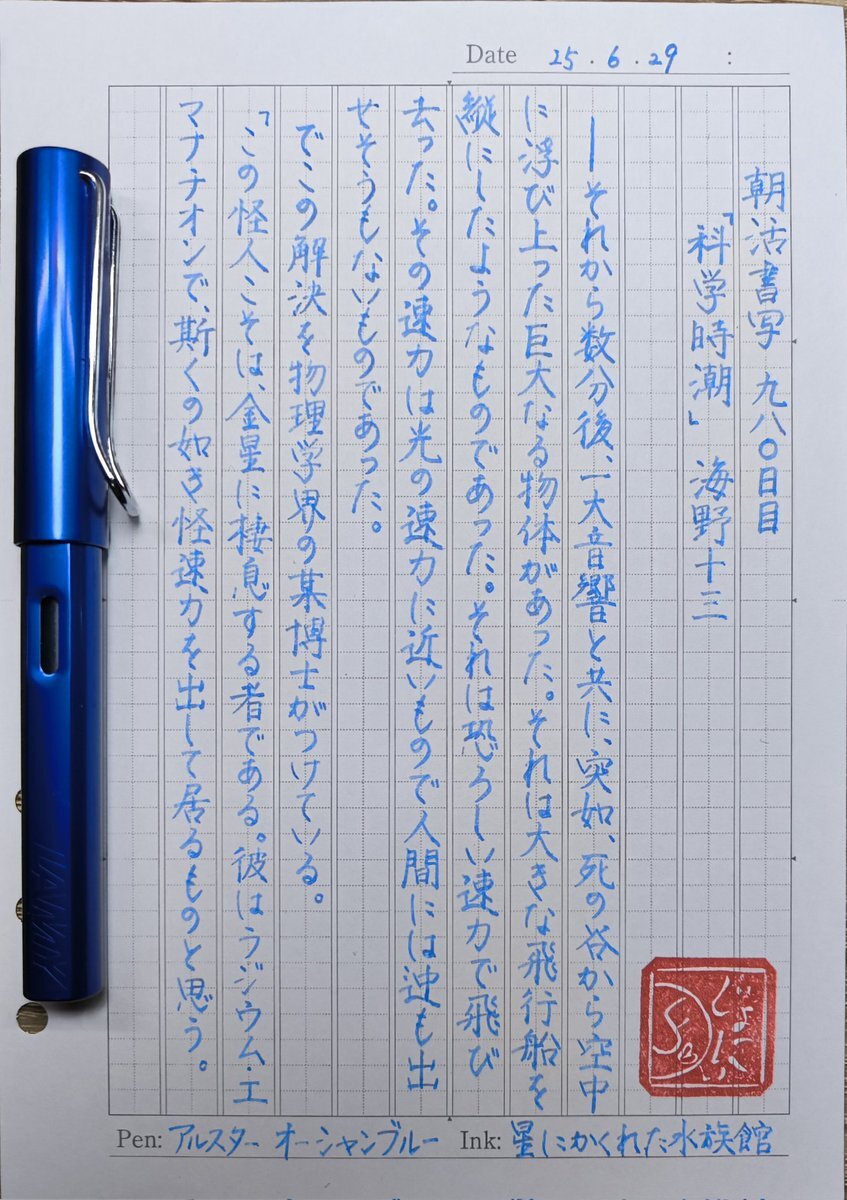 Date 25.6.29 :
朝活書写 九八〇日目
「科学時潮」 海野十三
―それから数分後、一大音響と共に、突如、死の谷から空中
に浮び上った巨大なる物体があった。それは大きな飛行船を
縦にしたようなものであった。それは恐ろしい速力で飛び
去った。その速力は光の速力に近いもので人間には迚も出
せそうもないものであった。
でこの解決を物理学界の某博士がつけている。
「この怪人こそは、金星に棲息する者である。彼はラジウム・エ
マナチオンで、斯くの如き怪速力を出して居るものと思う。
Pen: アルスター オーシャンブルー Ink: 星にかくれた水族館
LAMY